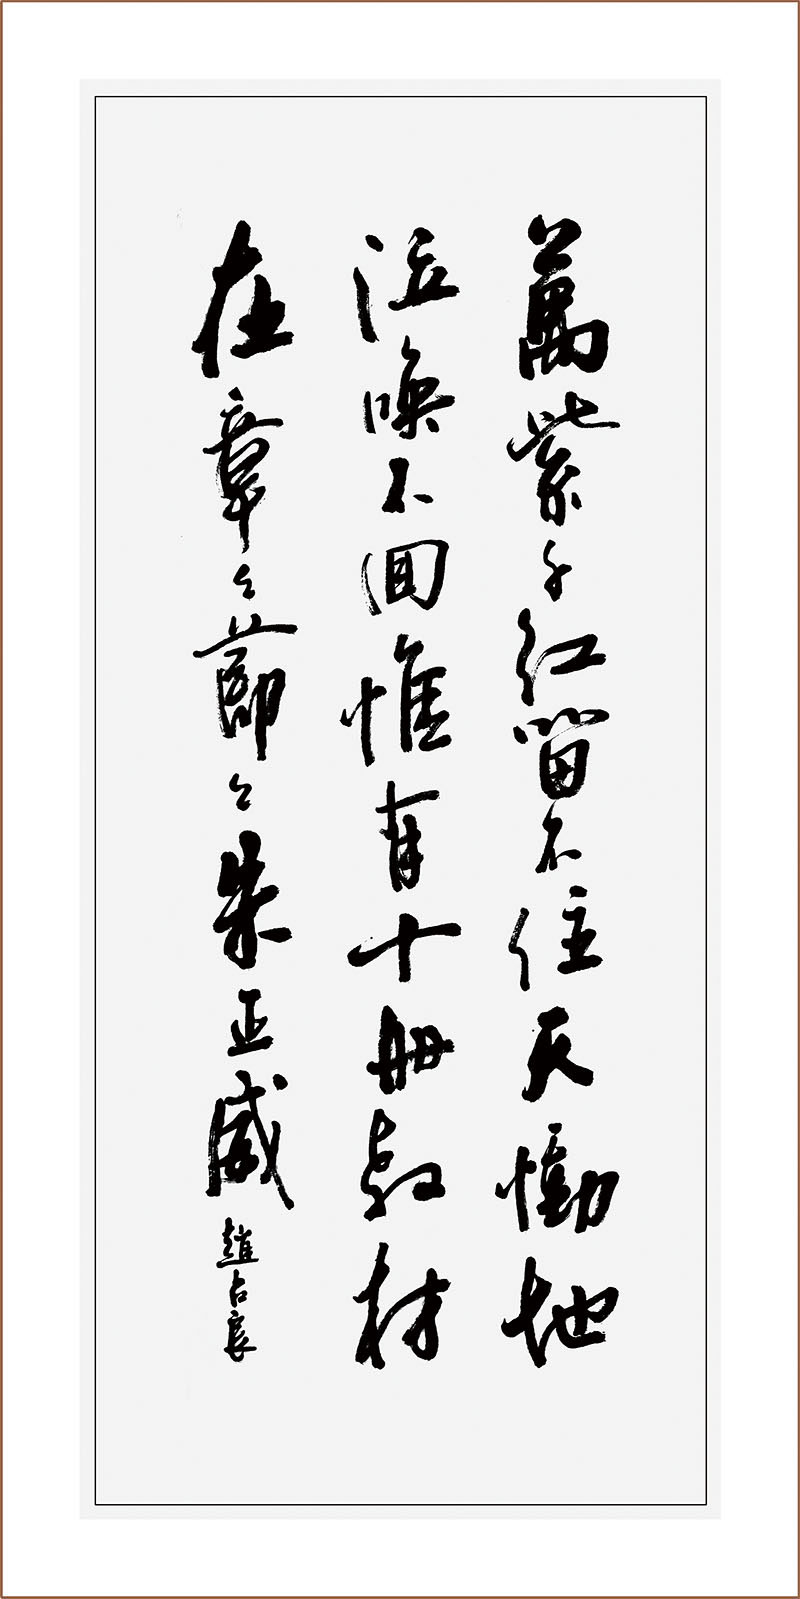 萬紫千紅留不住天慟地
泣喚不回惟有十册教材
在章々節々朱正威
趙占良